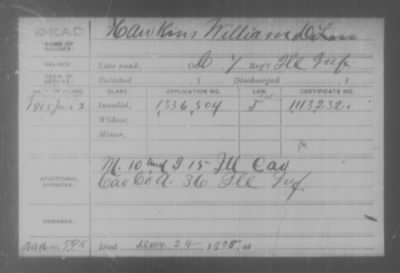 DEAD
Hawkins William
NAME OF SOLDIER:
SERVICE:
Late rank, Co. M 7 Reg't Ill Inf
TERM OF SERVICE:
Enlisted , 1 Discharged , 1
DATE OF FILING. CLASS. APPLICATION NO. LAW. CERTIFICATE NO.
1905 2 Invalid, 1,336,504 1,113,232.
Widow,
Minor,
ADDITIONAL SERVICES:
M. 10 and I 15 Ill Cav
Co A. 36 Ill Inf.
REMARKS:
Died Decr. 24, 1908, at